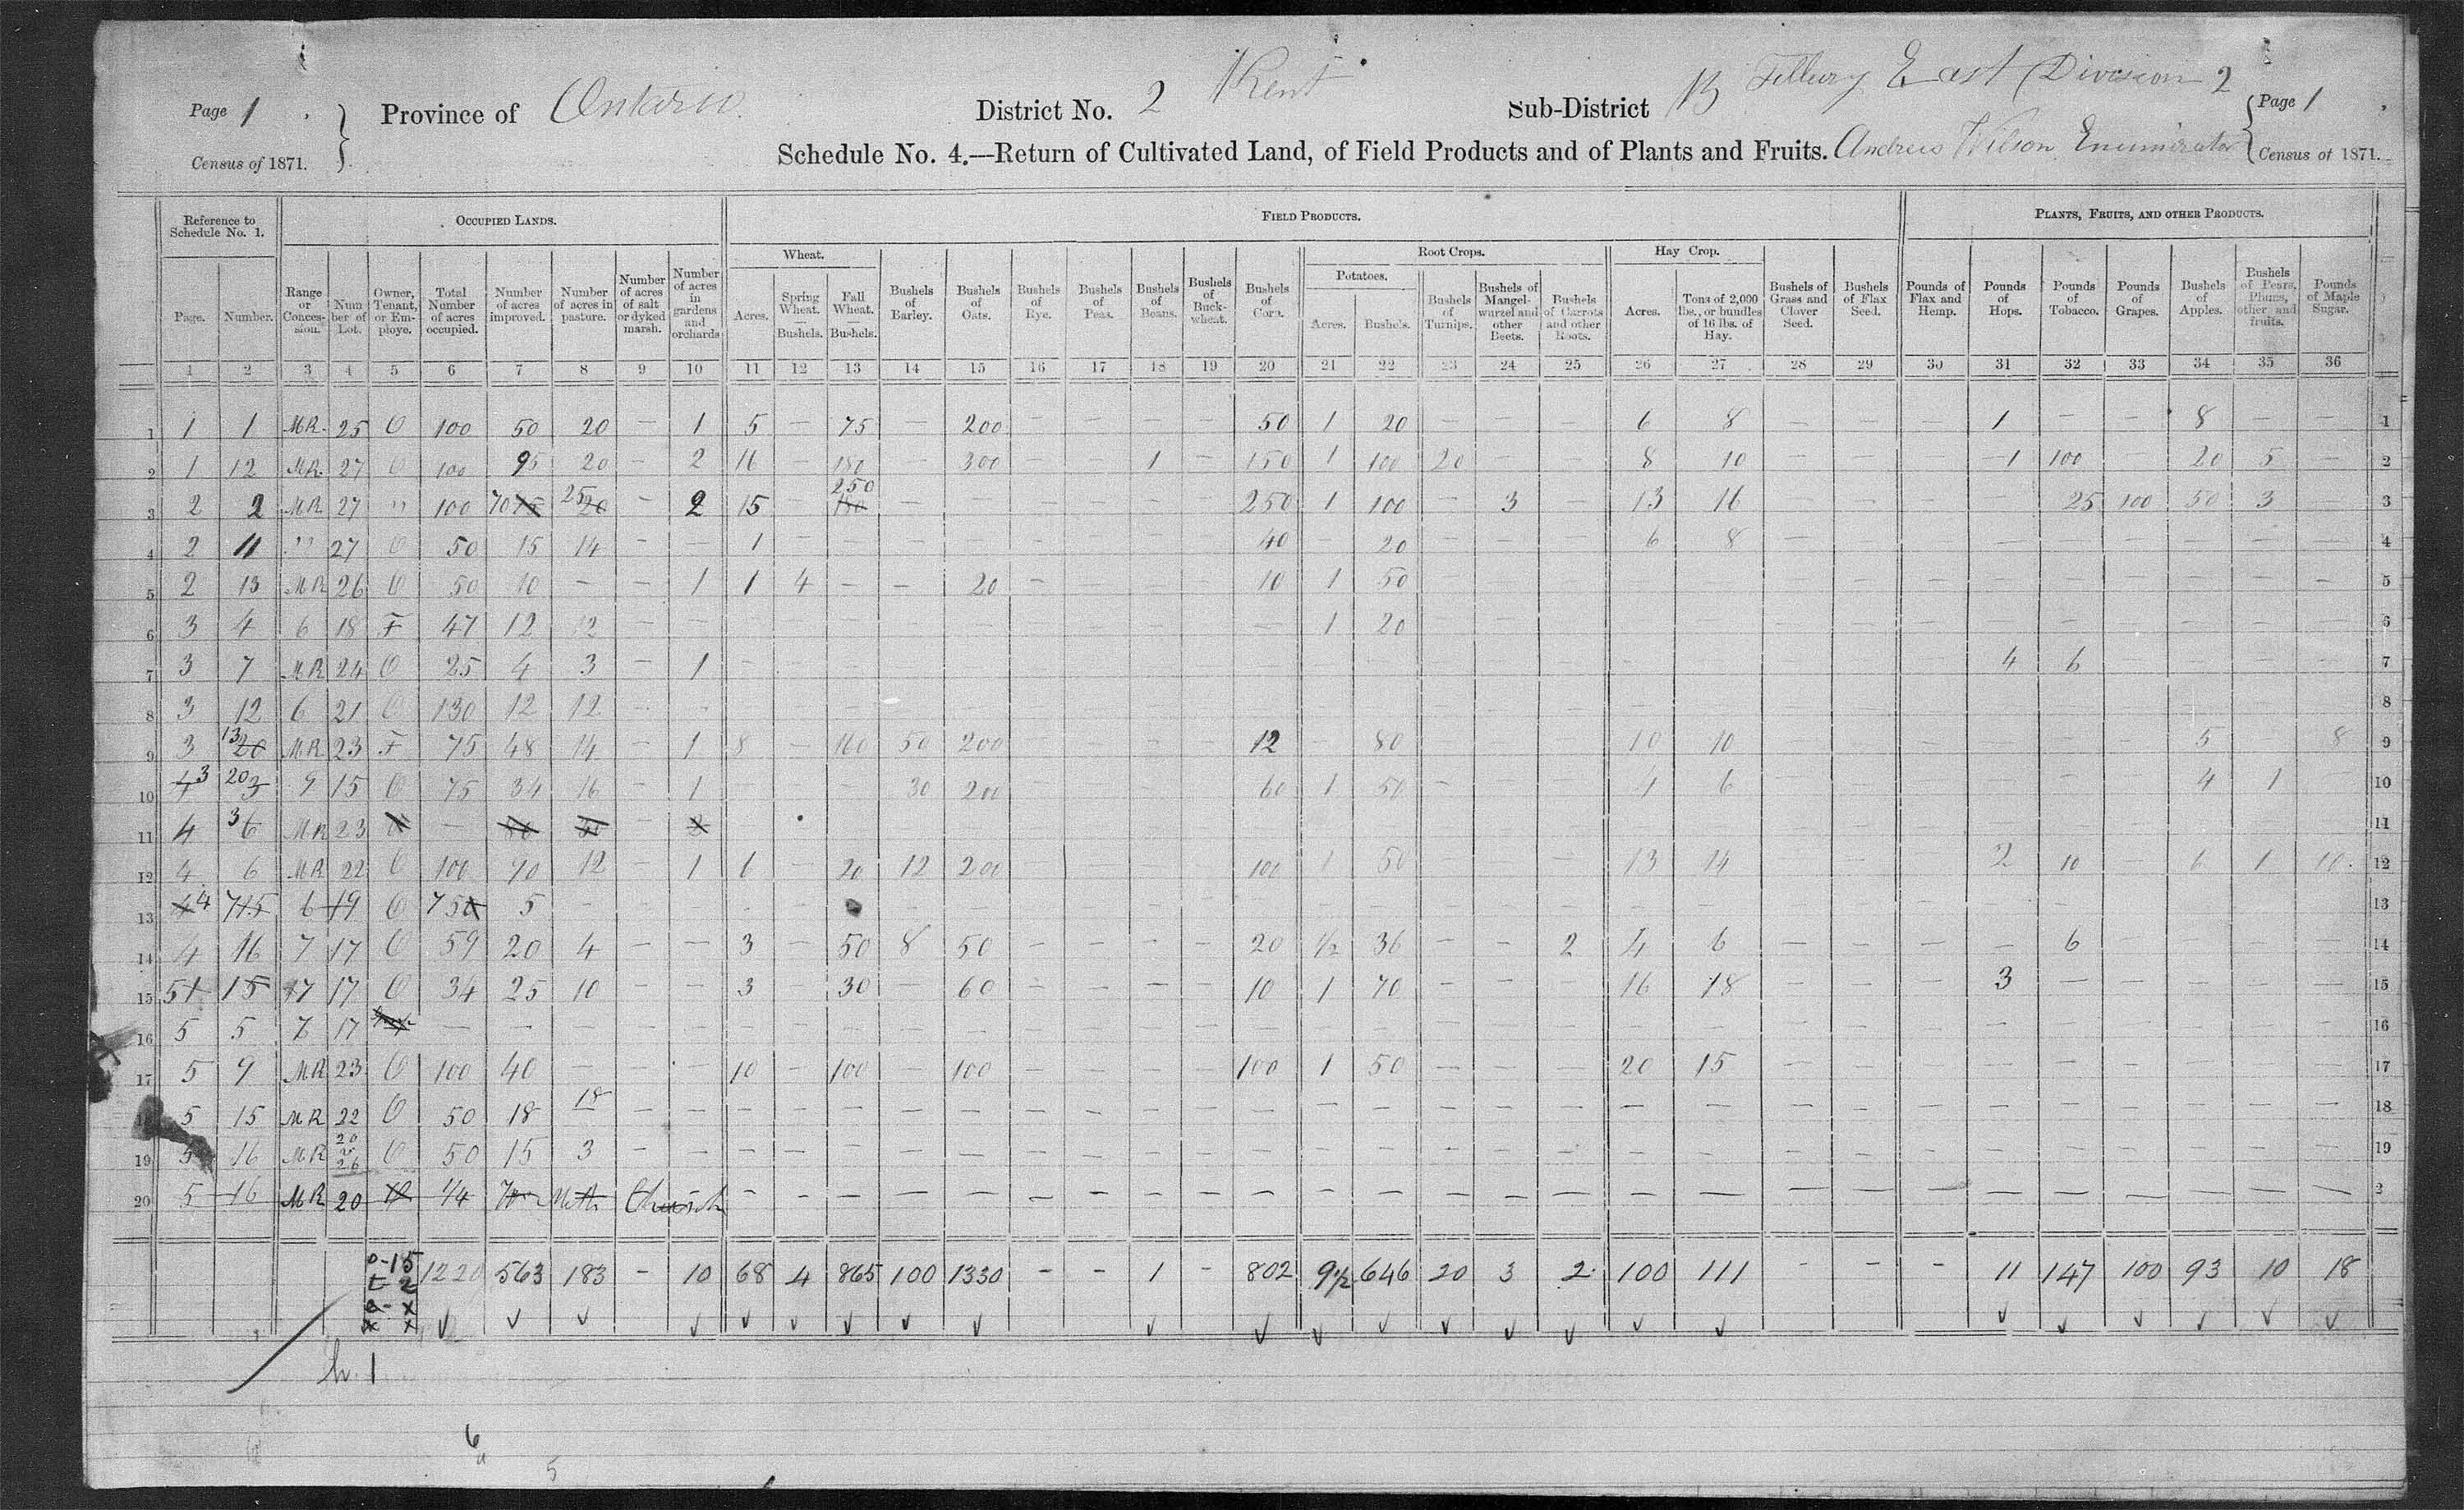 Page 1
Province of Ontario.
District No. 2 Kent
Sub-District B Tilbury East Division 2
Page 1
Census of 1871.
Schedule No. 4.—Return of Cultivated Land, of Field Products and of Plants and Fruits. Andrew Wilson Enumerator
Census of 1871.
Reference to Schedule No. 1.
OCCUPIED LANDS.
FIELD PRODUCTS.
PLANTS, FRUITS, AND OTHER PRODUCTS.
Wheat.
Root Crops.
Hay Crop.
Potatoes.
Page. Number. Range or Conces-sion. Num ber of Lot. Owner, Tenant, or Em-ploye. Total Number of acres occupied. Number of acres improved. Number of acres in pasture. Number of acres of salt or dyked marsh. Number of acres in gardens and orchards Acres. Spring Wheat. — Bushels. Fall Wheat. — Bushels. Bushels of Barley. Bushels of Oats. Bushels of Rye. Bushels of Peas. Bushels of Beans. Bushels of Buck-wheat. Bushels of Corn. Acres. Bushels. Bushels of Turnips. Bushels of Mangel-wurzel and other Beets. Bushels of Carrots and other Roots. Acres. Tons of 2,000 lbs., or bundles of 16 lbs. of Hay. Bushels of Grass and Clover Seed. Bushels of Flax Seed. Pounds of Flax and Hemp. Pounds of Hops. Pounds of Tobacco. Pounds of Grapes. Bushels of Apples. Bushels of Pears, Plums, other and fruits. Pounds of Maple Sugar.
1 2 3 4 5 6 7 8 9 10 11 12 13 14 15 16 17 18 19 20 21 22 23 24 25 26 27 28 29 30 31 32 33 34 35 36
1 1 1 MR. 25 O 100 50 20 — 1 5 — 75 — 200 — — — — 50 1 20 — — — 6 8 — — — 1 — — 8 — — 1
2 1 12 MR. 27 O 100 95 20 — 2 16 — 180 — 300 — — 1 — 150 1 100 20 — — 8 10 — — — 1 100 — 20 5 — 2
3 2 2 MR 27 " 100 70 75 25 20 — 2 15 — 250 180 — — — — — — 250 1 100 — 3 — 13 16 — — — — 25 100 50 3 — 3
4 2 11 " 27 O 50 15 14 — — 1 — — — — — — — — 40 — 20 — — — 6 8 — — — — — — — — — 4
5 2 13 MR 26 O 50 10 — — 1 1 4 — — 20 — — — — 10 1 50 — — — — — — — — — — — — — — 5
6 3 4 6 18 T 47 12 12 — — — — — — — — — — — — 1 20 — — — — — — — — — — — — — — 6
7 3 7 MR 24 O 25 4 3 — 1 — — — — — — — — — — — — — — — — — — — — 4 6 — — — — 7
8 3 12 6 21 O 130 12 12 — — — — — — — — — — — — — — — — — — — — — — — — — — — — 8
9 3 13 20 MR 23 T 75 48 14 — 1 8 — 160 50 200 — — — — 12 — 80 — — — 10 10 — — — — — — 5 8 9
10 4 3 20 3 9 15 O 75 34 16 — 1 — — — 30 200 — — — — 60 1 50 — — — 4 6 — — — — — — 4 1 — 10
11 4 3 6 MR 23 O — 80 30 — 2 — — — — — — — — — — — — — — — — — — — — — — — — — — 11
12 4 6 MR 22 O 100 70 12 — 1 6 — 20 12 200 — — — — 100 1 50 — — — 13 14 — — — 2 10 — 6 1 10. 12
13 4 4 7 15 6 19 O 75 5 — — — — — — — — — — — — — — — — — — — — — — — — — — — — 13
14 4 16 7 17 O 59 20 4 — — 3 — 50 8 50 — — — — 20 1/2 36 — — 2 4 6 — — — — 6 — — — — 14
15 5 1 15 7 17 O 34 25 10 — — 3 — 30 — 60 — — — — 10 1 70 — — — 16 18 — — — 3 — — — — — 15
16 5 5 7 17 — — — — — — — — — — — — — — — — — — — — — — — — — — — — — — — 16
17 5 9 MR 23 O 100 40 — — — 10 — 100 — 100 — — — — 100 1 50 — — — 20 15 — — — — — — — — — 17
18 5 15 MR 22 O 50 18 18 — — — — — — — — — — — — — — — — — — — — — — — — — — — — 18
19 5 16 MR 20 26 O 50 15 3 — — — — — — — — — — — — — — — — — — — — — — — — — — — — 19
20 5 16 MR 20 O 1/4 Meth Church — — — — — — — — — — — — — — — — — — — — — — — — — — 2
o-15 t-2 1220 563 183 — 10 68 4 865 100 1330 — — 1 — 802 9 1/2 646 20 3 2 100 111 — — — 11 147 100 93 10 18
h. 1
6
5